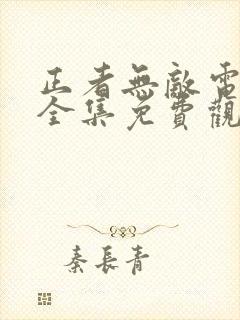 正者無敵電
全集免費觀
秦長青